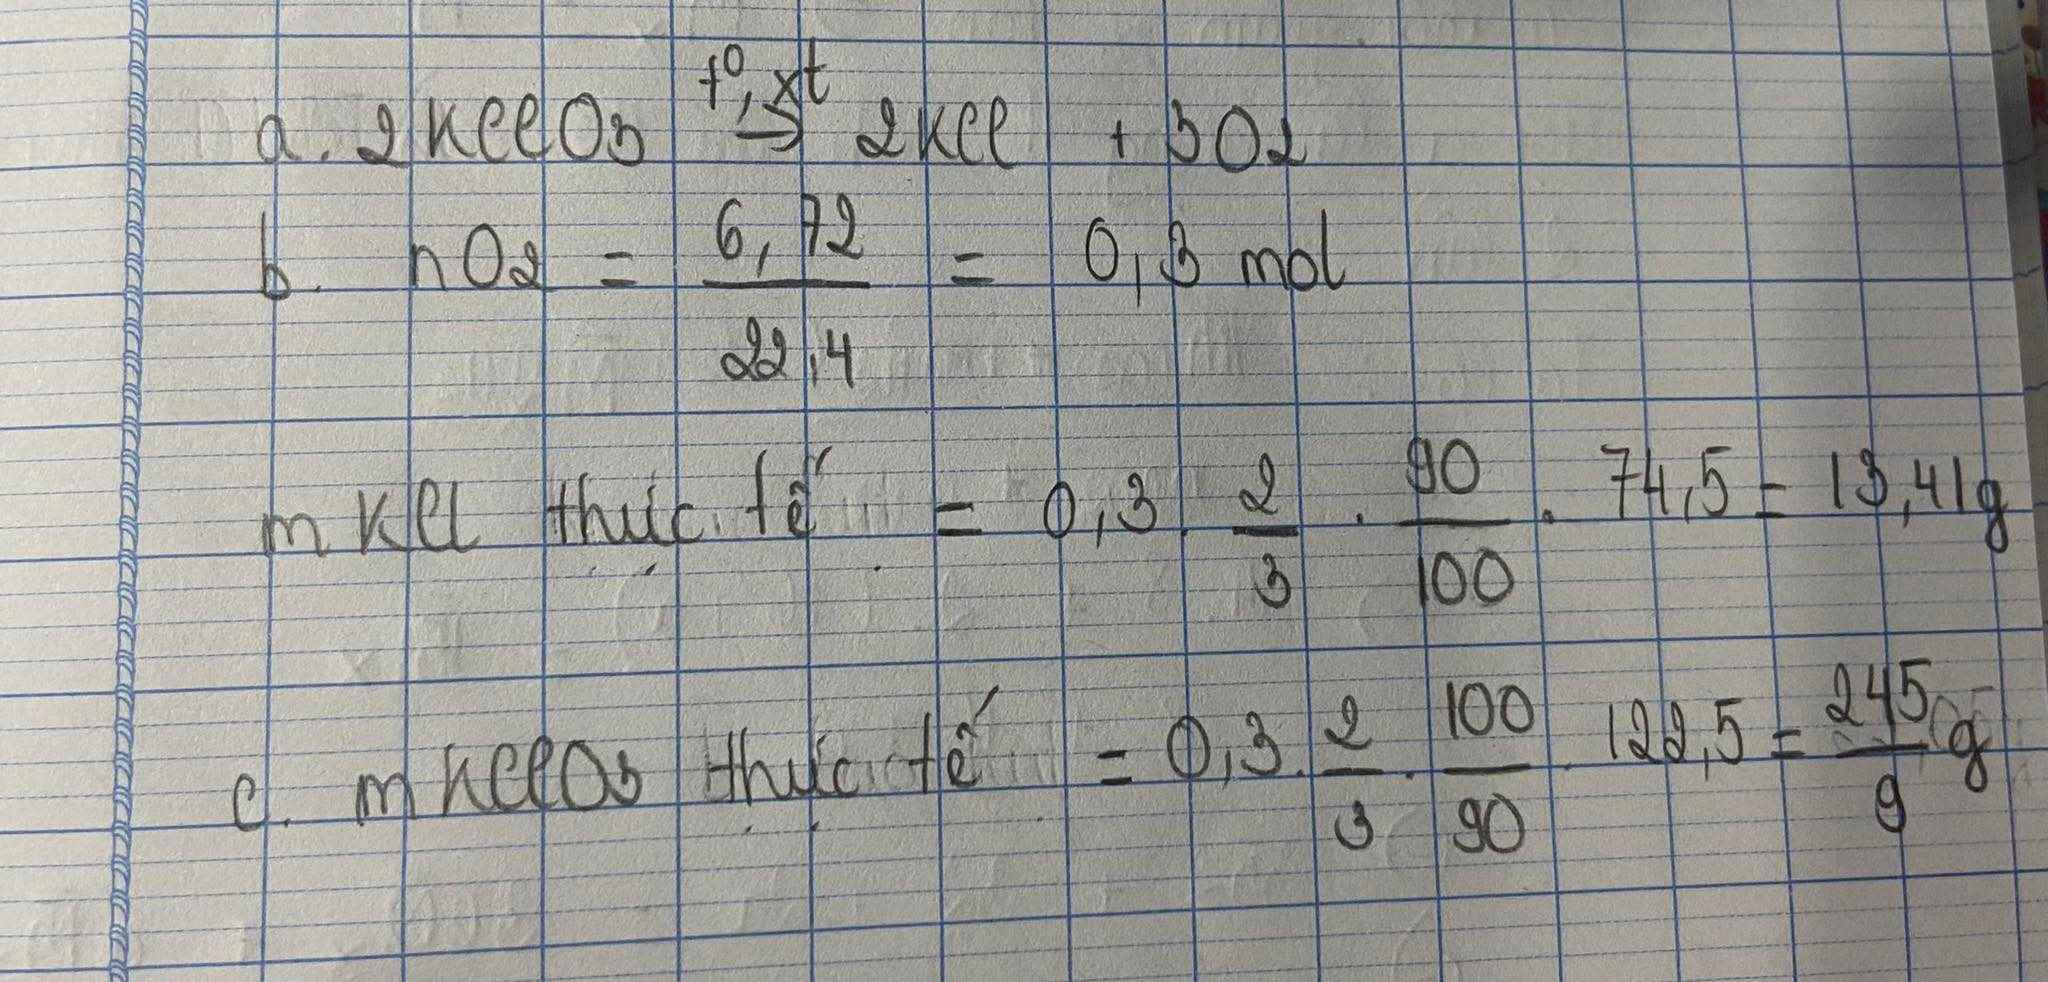 a. 2KClO3 t°, xt → 2KCl + 3O2
b. nO2 = 6,72 / 22,4 = 0,3 mol
mKCl thực tế = 0,3 . 2/3 . 90/100 . 74,5 = 13,41g
c. mKClO3 thực tế = 0,3 . 2/3 . 100/90 . 122,5 = 245/9 g